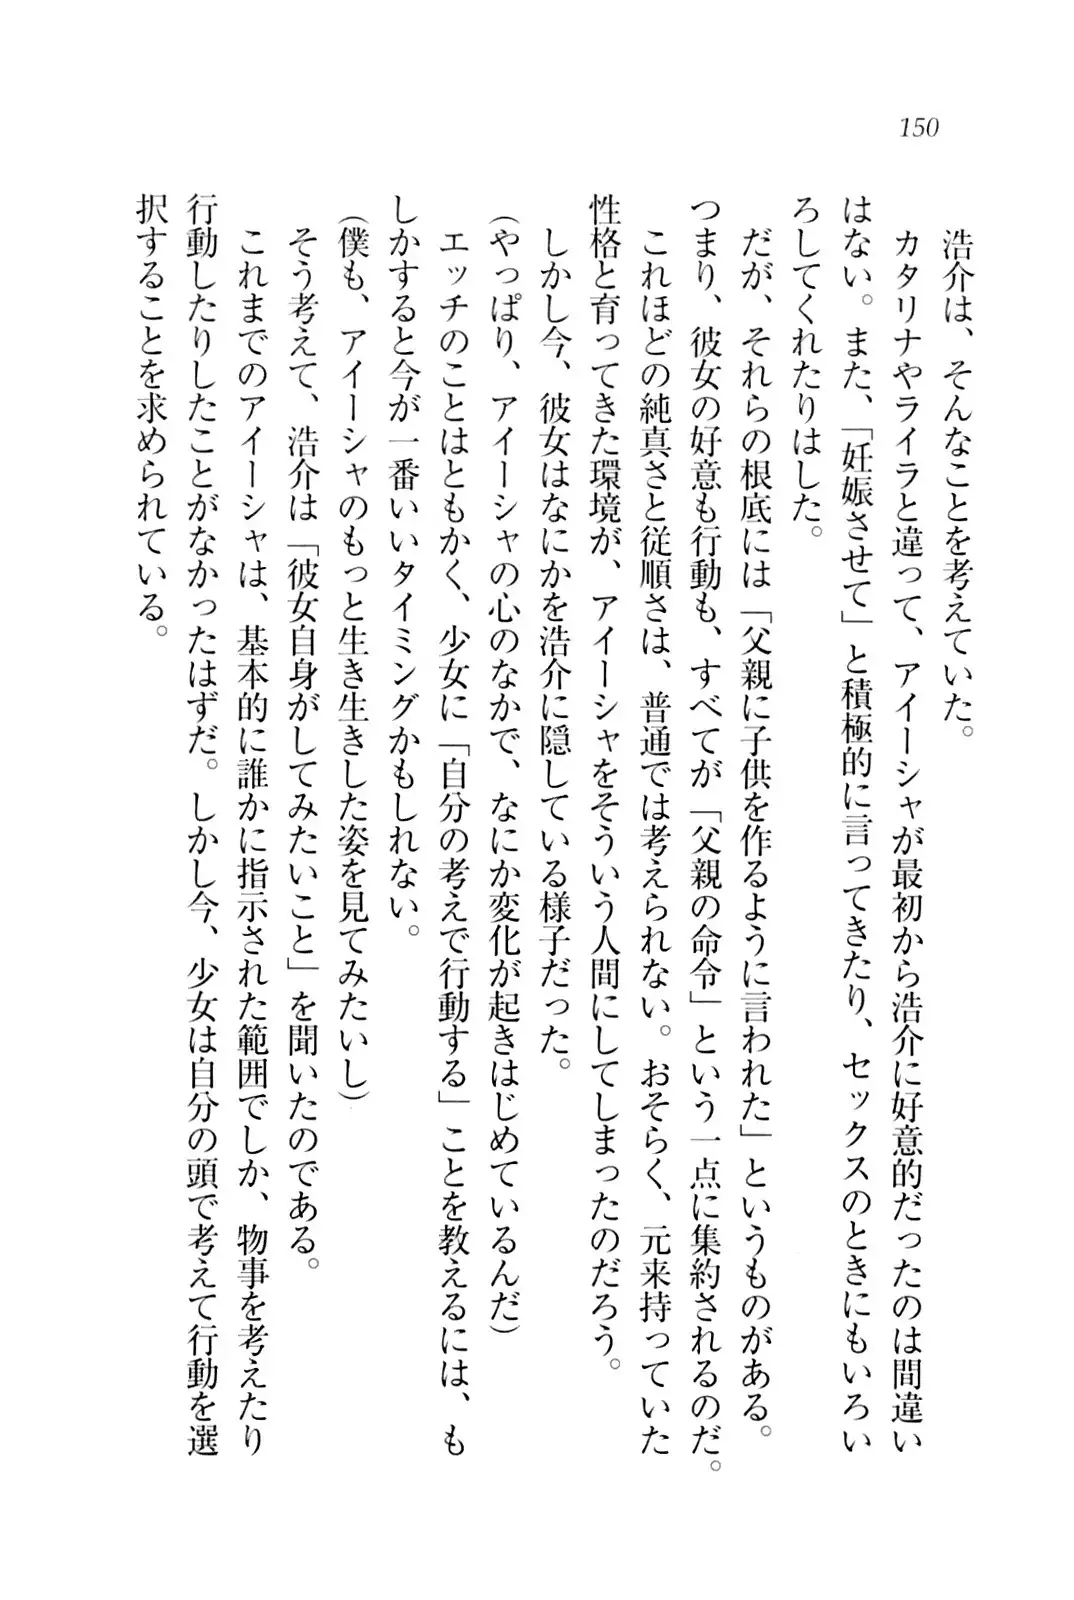 150
浩介は、そんなことを考えていた。
カタリナやライラと違って、アイーシャが最初から浩介に好意的だったのは間違い
はない。また、「妊娠させて」と積極的に言ってきたり、セックスのときにもいろい
ろしてくれたりはした。
だが、それらの根底には「父親に子供を作るように言われた」というものがある。
つまり、彼女の好意も行動も、すべてが「父親の命令」という一点に集約されるのだ。
これほどの純真さと従順さは、普通では考えられない。おそらく、元来持っていた
性格と育ってきた環境が、アイーシャをそういう人間にしてしまったのだろう。
しかし今、彼女はなにかを浩介に隠している様子だった。
（やっぱり、アイーシャの心のなかで、なにか変化が起きはじめているんだ）
エッチのことはともかく、少女に「自分の考えで行動する」ことを教えるには、も
しかすると今が一番いいタイミングかもしれない。
（僕も、アイーシャのもっと生き生きした姿を見てみたいし）
そう考えて、浩介は「彼女自身がしてみたいこと」を聞いたのである。
これまでのアイーシャは、基本的に誰かに指示された範囲でしか、物事を考えたり
行動したりしたことがなかったはずだ。しかし今、少女は自分の頭で考えて行動を選
択することを求められている。